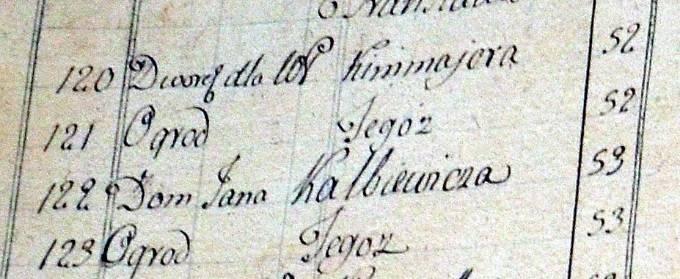 120 Dworek dla WP Kimmajera 52
121 Ogrod Tegoz 52
122 Dom Jana Kalbiewicza 53
123 Ogrod Tegoz 53